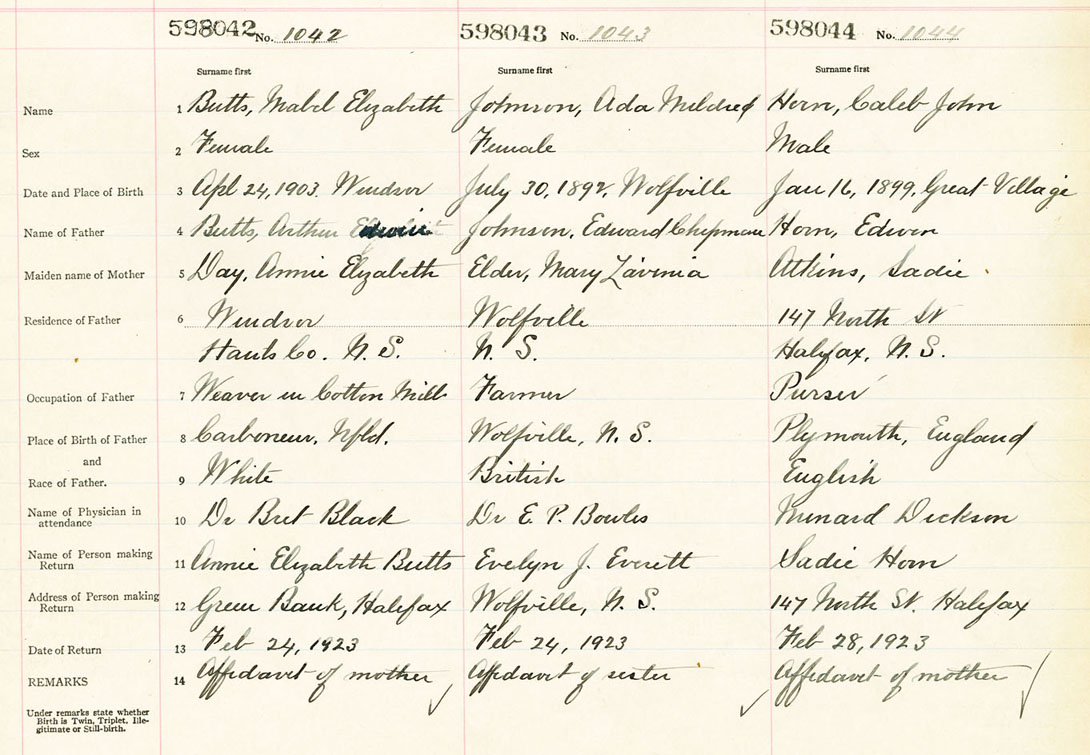 598042 No. 1042 598043 No. 1043 598044 No. 1044
Surname first Surname first Surname first
Name 1 Butts, Mabel Elizabeth Johnson, Ada Mildred Horn, Caleb John
Sex 2 Female Female Male
Date and Place of Birth 3 Apl 24, 1903. Windsor July 30, 1892, Wolfville Jan 16, 1899, Great Village
Name of Father 4 Butts, Arthur Edwin Johnson, Edward Chipman Horn, Edwin
Maiden name of Mother 5 Day, Annie Elizabeth Elder, Mary Lavinia Atkins, Sadie
Residence of Father 6 Windsor Wolfville 147 North St
Hants Co. N.S. N.S. Halifax, N.S.
Occupation of Father 7 Weaver in Cotton Mill Farmer Purser
Place of Birth of Father 8 Carboneur, Nfld. Wolfville, N.S. Plymouth, England
and
Race of Father. 9 White British English
Name of Physician in
attendance 10 Dr Bret Black Dr E. P. Bowles Minard Dickson
Name of Person making
Return 11 Annie Elizabeth Butts Evelyn J. Everett Sadie Horn
Address of Person making
Return 12 Green Bank, Halifax Wolfville, N.S. 147 North St. Halifax
Date of Return 13 Feb 24, 1923 Feb 24, 1923 Feb 28, 1923
REMARKS 14 Affidavit of mother Affidavit of sister Affidavit of mother
Under remarks state whether
Birth is Twin, Triplet, Ille-
gitimate or Still-birth.